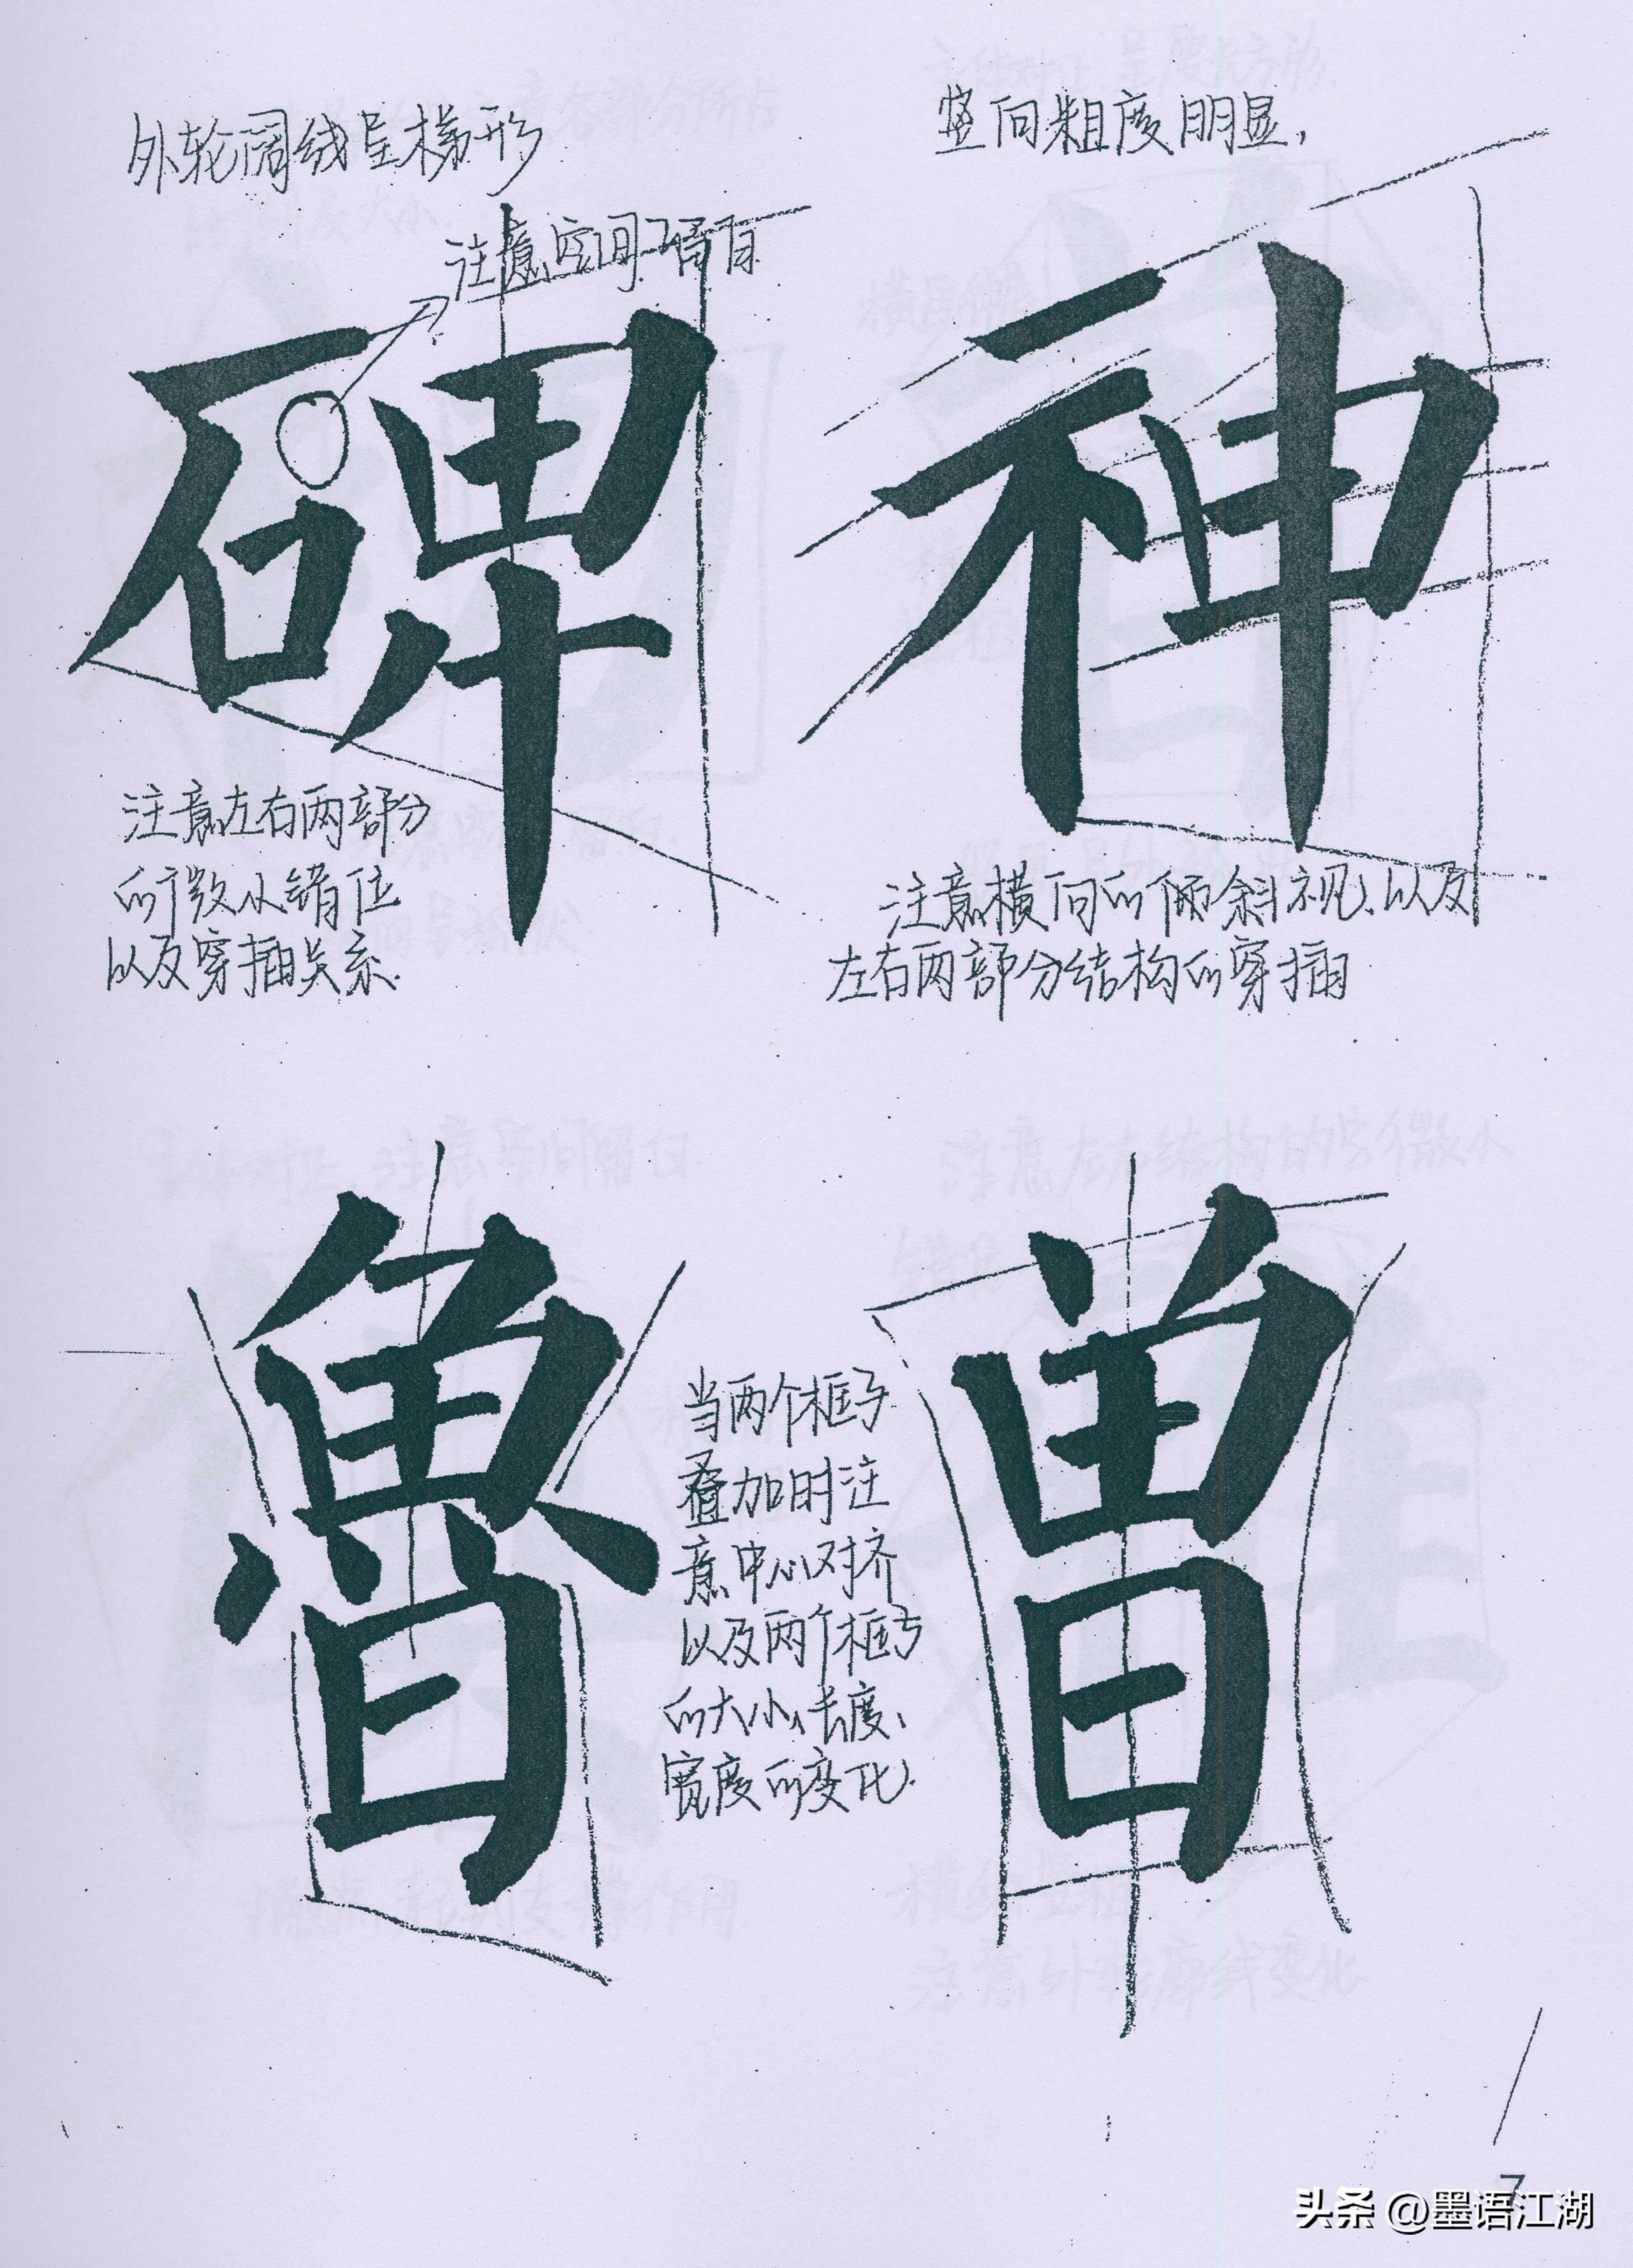 外轮阔线呈梯形
注意空间留白
碑
注意左右两部分
的微小错位
以及穿插关系.
竖向粗度明显,
神
注意横向的倾斜视、以及
左右两部分结构的穿插
魯
当两个框子
叠加时注
意中心对齐
以及两个框子
的大小、长度、
宽度的变化.
曽
7
头条 @墨语江湖